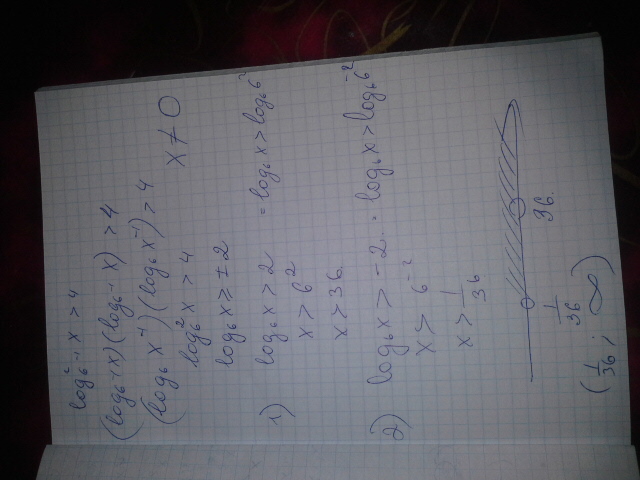 log²₆₋₁ x > 4
(log₆₋₁ x)(log₆₋₁ x) > 4
(log₆ x⁻¹)(log₆ x⁻¹) > 4
x ≠ 0
log₆² x > 4
log₆ x > ±2
1) log₆ x > 2 = log₆ x > log₆ 6²
x > 6²
x > 36.
2) log₆ x > -2. = log₆ x > log₆ 6⁻²
x > 6⁻²
x > 1/36
1/36 36.
(1/36; ∞)